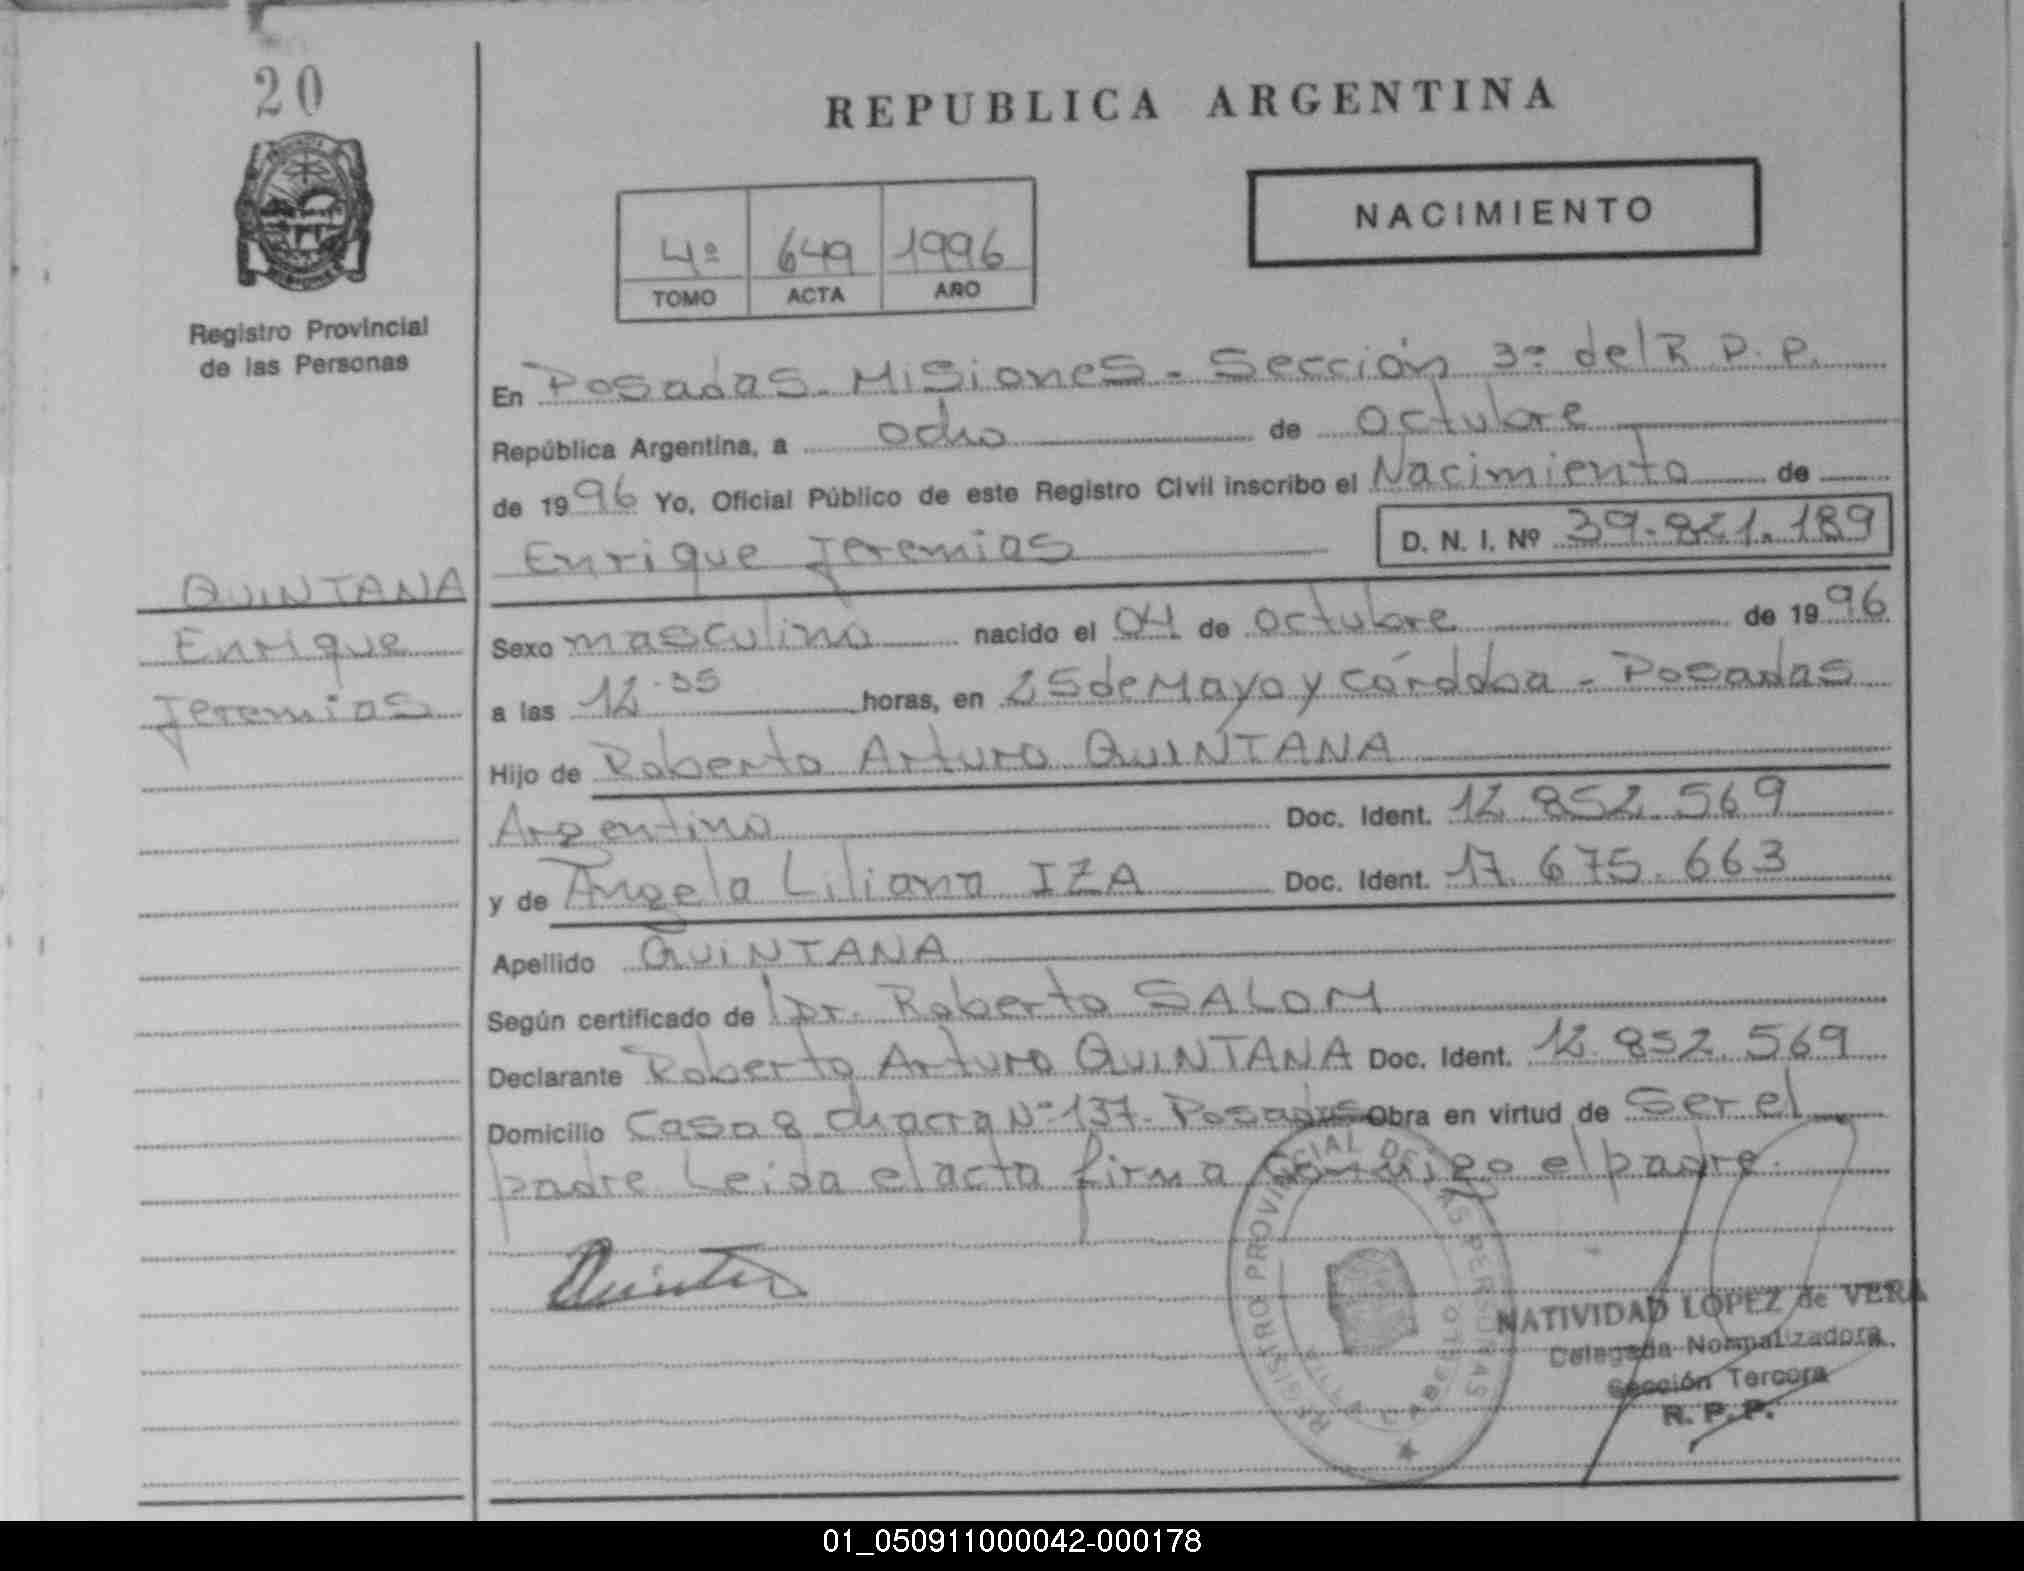 20
REPUBLICA ARGENTINA
NACIMIENTO
4º 649 1996
TOMO ACTA AÑO
Registro Provincial
de las Personas
En Posadas - Misiones - Sección 3ª del R. P. P.
República Argentina, a ocho de octubre
de 1996 Yo, Oficial Público de este Registro Civil inscribo el Nacimiento de
Enrique Jeremias D. N. I. Nº 39.821.189
QUINTANA
Enrique
Jeremias
Sexo masculino nacido el 04 de octubre de 1996
a las 12.35 horas, en 25 de Mayo y Córdoba - Posadas
Hijo de Roberto Arturo QUINTANA
Argentino Doc. Ident. 12.852.569
y de Angela Liliana IZA Doc. Ident. 17.675.663
Apellido QUINTANA
Según certificado de Dr. Roberto SALOM
Declarante Roberto Arturo QUINTANA Doc. Ident. 12.852.569
Domicilio Casa 8 chacra Nº 137 - Posadas Obra en virtud de Ser el
padre Leida el acta firma conmigo el padre.
REGISTRO PROVINCIAL DE LAS PERSONAS
NATIVIDAD LOPEZ de VERA
Delegada Normalizadora
Sección Tercera
R. P. P.
01_050911000042-000178